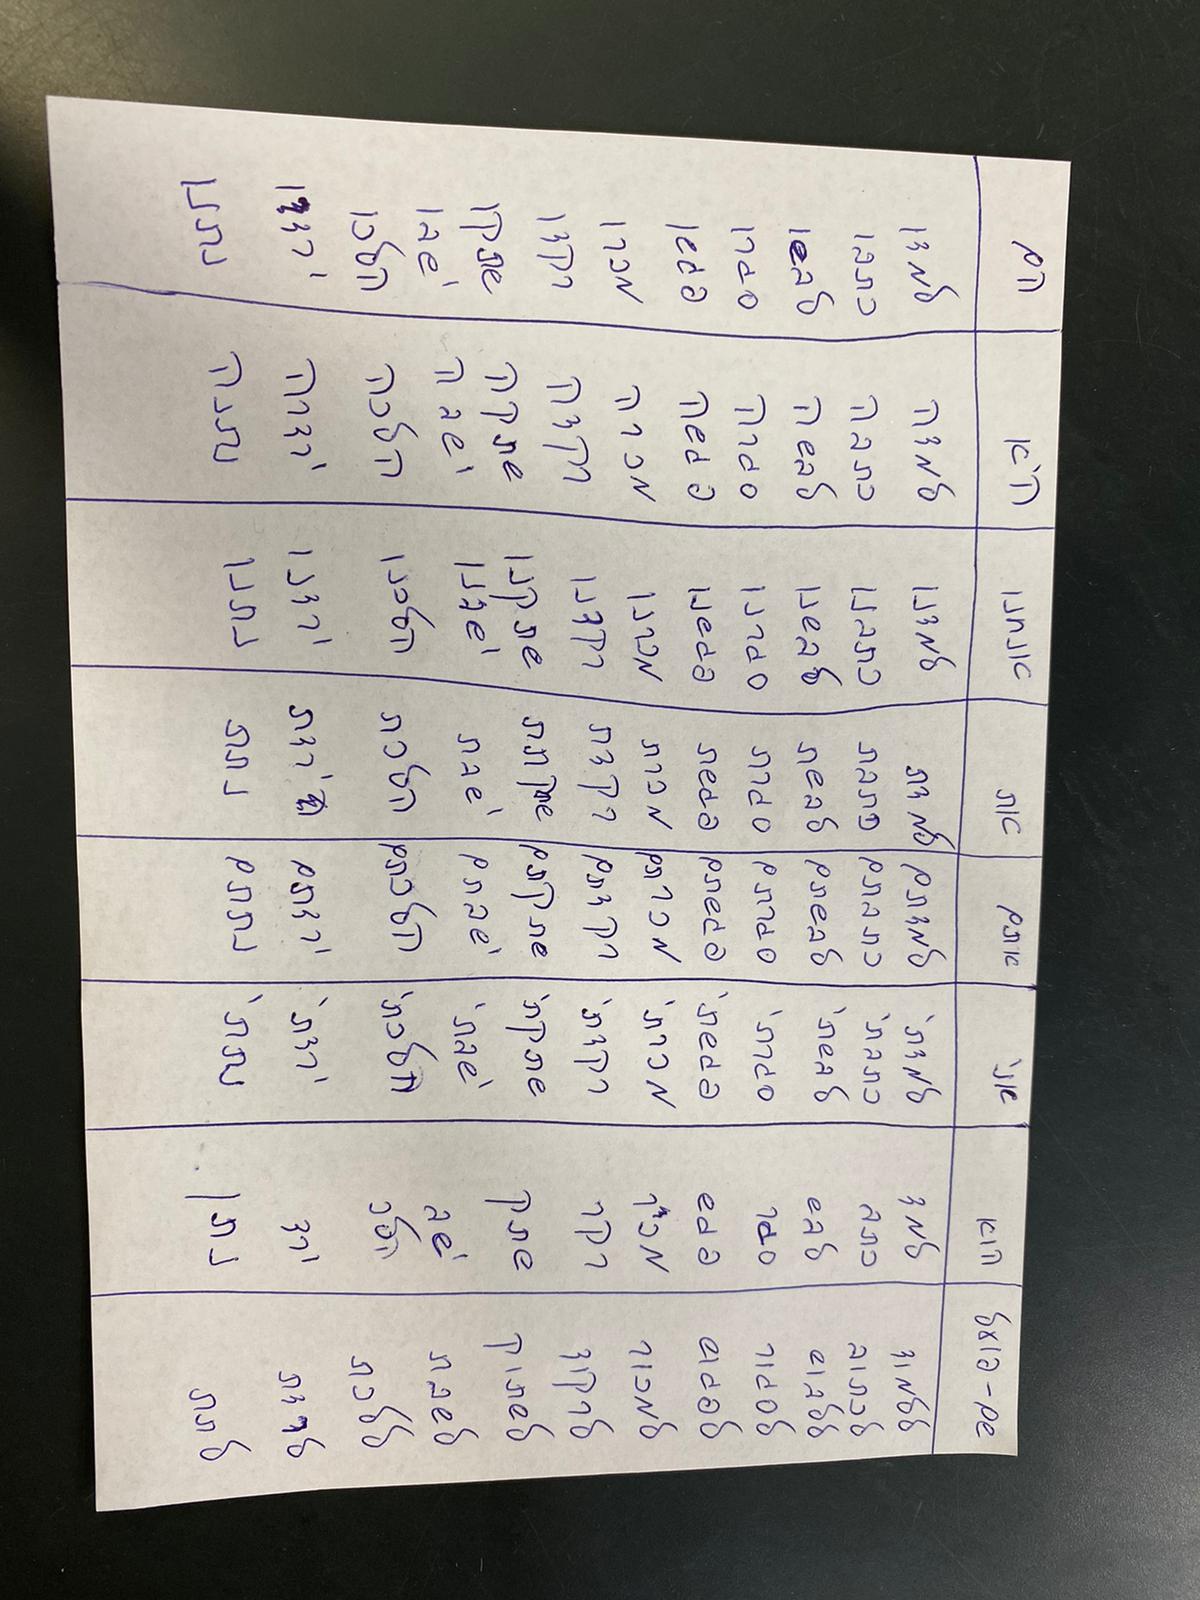 שם-פועל הוא אני אתם את אנחנו היא הם
ללמוד למד למדתי למדתם למדת למדנו למדה למדו
לכתוב כתב כתבתי כתבתם כתבת כתבנו כתבה כתבו
ללבוש לבש לבשתי לבשתם לבשת לבשנו לבשה לבשו
לסגור סגר סגרתי סגרתם סגרת סגרנו סגרה סגרו
לפגוש פגש פגשתי פגשתם פגשת פגשנו פגשה פגשו
למכור מכר מכרתי מכרתם מכרת מכרנו מכרה מכרו
לרקוד רקד רקדתי רקדתם רקדת רקדנו רקדה רקדו
לשתוק שתק שתקתי שתקתם שתקנו שתקה שתקו
לשבת ישב ישבתי ישבתם ישבת ישבנו ישבה ישבו
ללכת הלכ הלכתי הלכתם הלכת הלכנו הלכה הלכו
לרדת ירד ירדתי ירדתם ירדת ירדנו ירדה ירדו
לתת נתן נתתי נתתם נתת נתנו נתנה נתנו